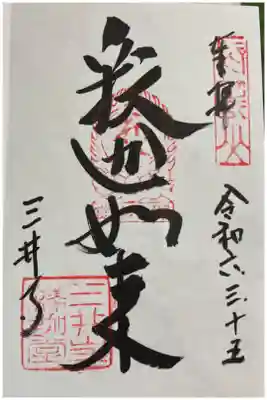 奉拝
令和六.三.十五
釈迦如来
三井寺
三井寺
釈迦堂